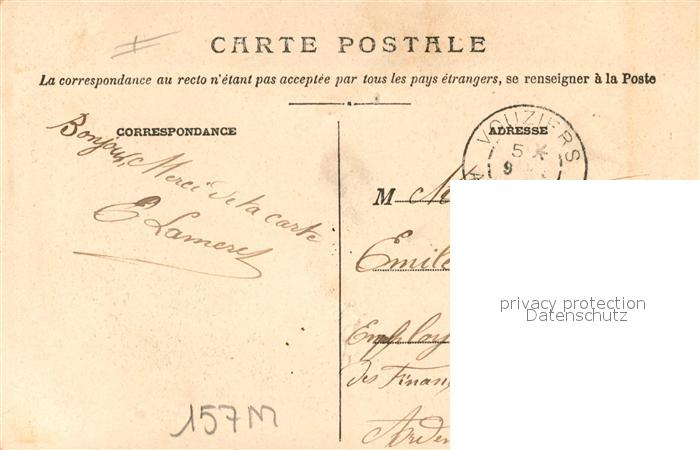 CARTE POSTALE
La correspondance au recto n'étant pas acceptée par tous les pays étrangers, se renseigner à la Poste
CORRESPONDANCE
Bonjour, Merci de ta carte
E Lameret
157M
ADRESSE
VOUZIERS
5
9
M
Emile
Employ
des Finan
Arden
privacy protection
Datenschutz